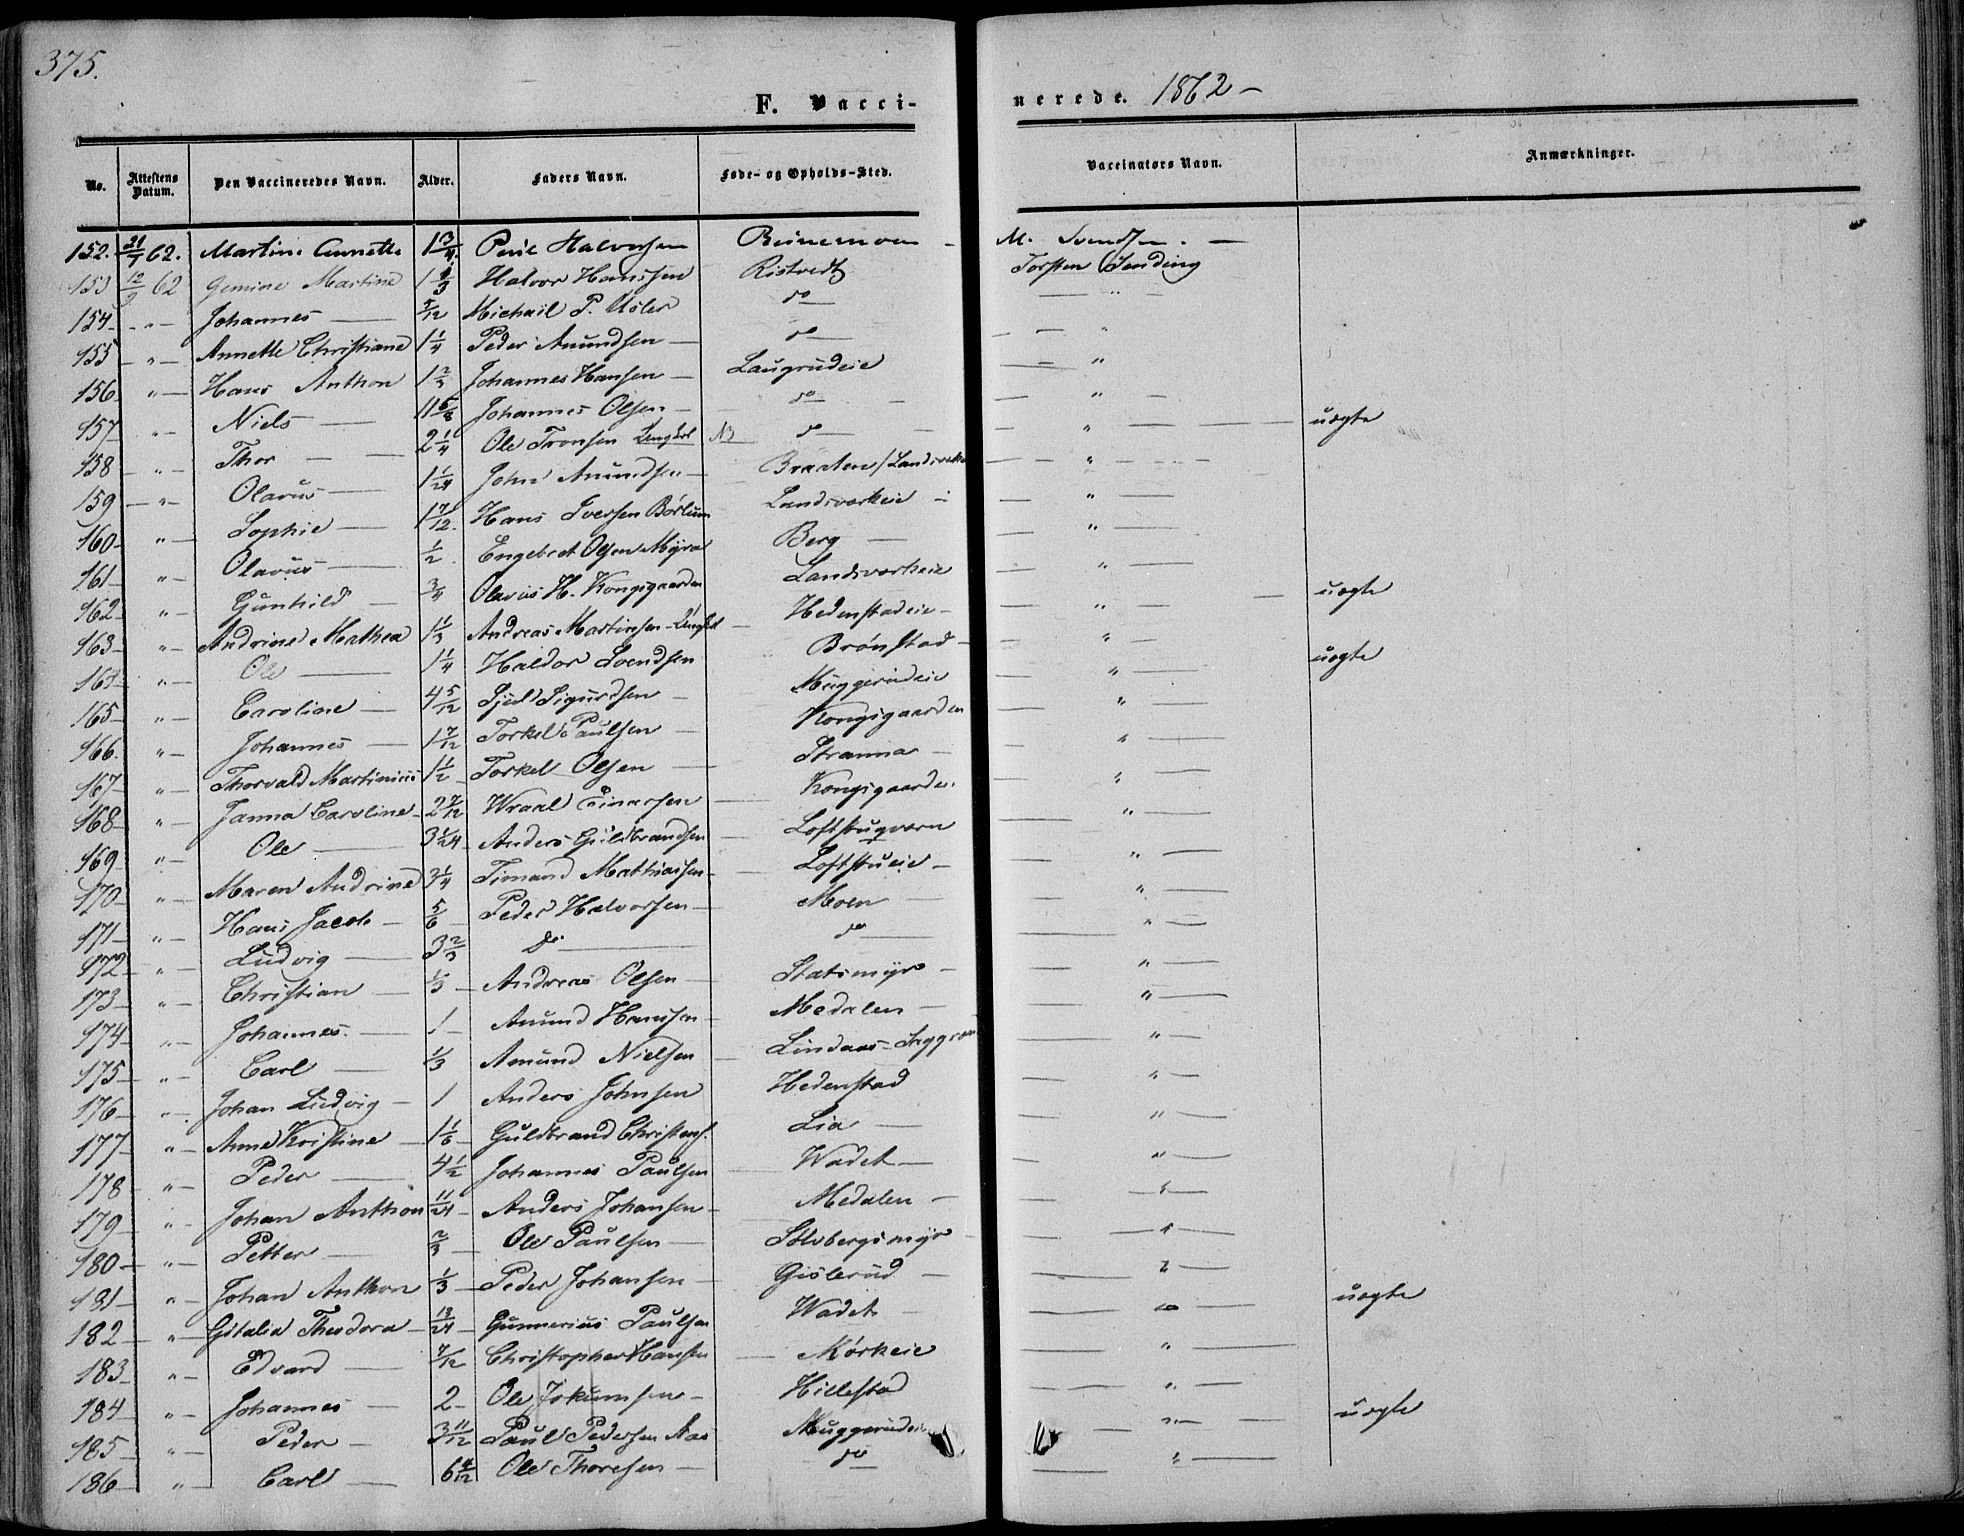 375.
F. Vaccinerede. 1862 –
No. Attestens Datum. Den Vaccineredes Navn. Alder. Faders Navn. Føde- og Opholds-Sted. Vaccinators Navn. Anmærkninger.
152. 21/7 62. Martine Annette 1 3/4. Paul Halvorsen – M. Svendsen. –
153 12/9 62 Gemine Martine 1 1/3 Halvor Hanssen Ristvedt Torsten Sending
154 – " – Johannes — 5/12 Michail P. do — " –
155 " – Annette Christiane 1 1/4 Peder Amundsen – do — "
156 " – Hans Anthon 1 2/3 Johannes Hansen – Laugrudeie — "
157 " – Niels — 11 5/8 Johannes Olsen – do – — " —
158 " – Thor — 2 1/4 Ole Tronsen Lengdal do — " — uægte
159 – " – Olavus — 1 1/24 John Amundsen – Braaten / Landsverk — " —
160 " – Sophie — 1 7/12. Hans Iversen Børlum Landsverkeie — " —
161 " – Olavus — 1/2. Engebret Olsen Myra Berg — — " —
162 " – Gunhild – 3/4 Olavus H. Kongsgaarden Landsverkeie — " —
163 " – Andrine Mathea 1 1/3 Andreas Martinsen – Lengdal – Hedenstadeie – — " — uægte
164 " – Ole — 1 1/4 Haldor Svendsen Brønstad – — " –
165 " – Caroline – 4 5/12 Sjul Sigurdsen – Muggerudeie — " — uægte
166. " – Johannes – 1 7/12 Torkel Paulsen – Kongsgaarden — " —
167 " – Thorvald Martinius 1 1/2 Torkel Olsen — Stranna – — " —
168 " – Janna Caroline – 2 7/12 Wraal Einarsen — Kongsgaarden — " —
169 " – Ole — 3 1/24 Anders Guldbrandsen — Loftstugværn — " —
170 " – Maren Andrine 3 1/4 Timand Mathiassen – — Loftstueie – — " —
171 " – Hans Jacob – 5/6 Peder Halvorsen — Moen — — " —
172 " – Ludvig — 3 2/3 Do — do — — " —
173 " – Christian — 1/3 – Andreas Olsen – Statsmyr – — " —
174 " – Johannes. — 1 – Amund Hansen – Medalen – — " —
175 " – Carl — 1/3 Amund Nielsen – Lindaas – — " —
176 " – Johan Ludvig – 1 Anders Johnsen Hedenstad — " —
177 " – Anne Kristine – 1 1/6 – Guldbrand Christens. Lia — — " —
178 " – Peder — 4 1/2 Johannes Paulsen Wadet — — " —
179 " – Johan Anthon 11/24 – Anders Johansen – Medalen – — " —
180 " – Petter — 2/3 – Ole Paulsen — Solvbergsmyr – — " —
181 " – Johan Anthon 1/3 – Peder Johansen – Gislerud – — " —
182 " – Gitalia Theodora – 13/24 – Gunnerius Paulsen Wadet — — " — uægte
183 " – Edvard — 7/12 Christopher Hansen – Mørkeie — " —
184 " – Johannes – 2 – Ole Jokumsen – Hillestad — " —
185 " – Peder – 3 11/12 Paul Pedersen Aas Muggerudeie — " — uægte
186 " – Carl – 6 4/12 Ole Thoresen – do — " —